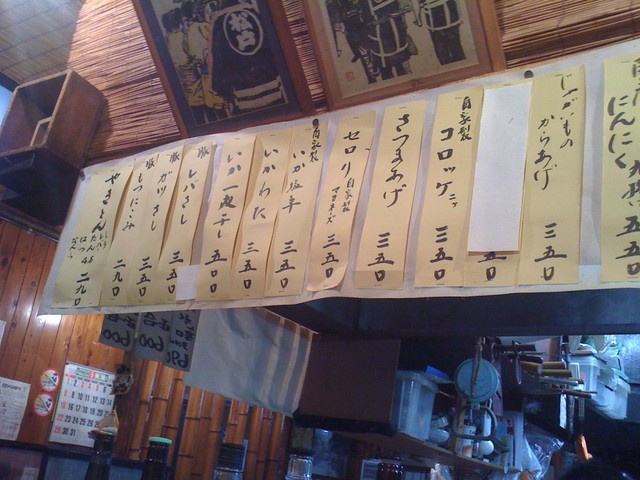 自家製
にんにく
五五〇
じゃがいもの
からあげ
三五〇
五〇
自家製
コロッケ
三五〇
さつまあげ
三五〇
セロリ
自家製
マヨネーズ
三五〇
自家製
いか塩辛
三五〇
いかわた
三五〇
いか一夜干し
五五〇
豚レバさし
三五〇
豚ガツさし
三五〇
豚もつにこみ
三五〇
やきとん
たん
はつ
二九〇
松戸
600
600